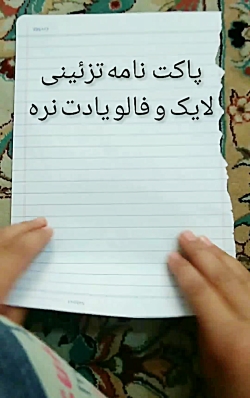 پاکت نامه تزئینی
لایک و فالو یادت نره